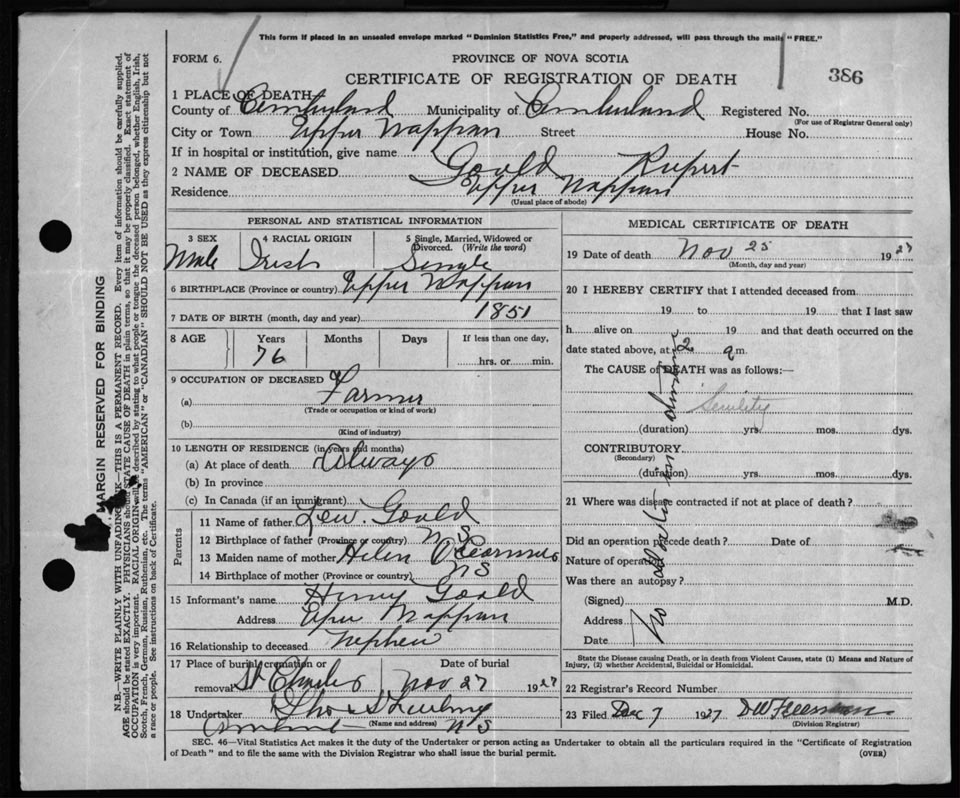 This form if placed in an unsealed envelope marked "Dominion Statistics Free," and properly addressed, will pass through the mails "FREE."
FORM 6.
PROVINCE OF NOVA SCOTIA
CERTIFICATE OF REGISTRATION OF DEATH
386
1 PLACE OF DEATH
County of Cumberland Municipality of Cumberland Registered No.
(For use of Registrar General only)
City or Town Upper Nappan Street House No.
If in hospital or institution, give name
2 NAME OF DECEASED Gould Rupert
Residence Upper Nappan
(Usual place of abode)
PERSONAL AND STATISTICAL INFORMATION
3 SEX Male
4 RACIAL ORIGIN Irish
5 Single, Married, Widowed or Divorced. (Write the word) Single
6 BIRTHPLACE (Province or country) Upper Nappan
7 DATE OF BIRTH (month, day and year) 1851
8 AGE Years 76 Months Days If less than one day, hrs. or min.
9 OCCUPATION OF DECEASED
(a) Farmer
(Trade or occupation or kind of work)
(b)
(Kind of industry)
10 LENGTH OF RESIDENCE (in years and months)
(a) At place of death Always
(b) In province
(c) In Canada (if an immigrant)
Parents
11 Name of father Lew. Gould
12 Birthplace of father (Province or country) N S
13 Maiden name of mother Helen
14 Birthplace of mother (Province or country) NS
15 Informant's name Henry Gould
Address Uper Nappan
16 Relationship to deceased Nephew
17 Place of burial cremation or removal St Charles Date of burial Nov 27 1927
18 Undertaker
(Name and address) N S
MEDICAL CERTIFICATE OF DEATH
19 Date of death Nov 25 1927
(Month, day and year)
20 I HEREBY CERTIFY that I attended deceased from
19 to 19 that I last saw
h alive on 19 and that death occurred on the
date stated above, at 2 a m.
The CAUSE of DEATH was as follows:—
Senility
(duration) yrs. mos. dys.
CONTRIBUTORY
(Secondary)
(duration) yrs. mos. dys.
No doctor in attendance
21 Where was disease contracted if not at place of death?
Did an operation precede death? Date of
Nature of operation
Was there an autopsy?
(Signed) M.D.
Address
Date
State the Disease causing Death, or in death from Violent Causes, state (1) Means and Nature of
Injury, (2) whether Accidental, Suicidal or Homicidal.
22 Registrar's Record Number
23 Filed Dec 7 1927 D W Freeman
(Division Registrar)
SEC. 46—Vital Statistics Act makes it the duty of the Undertaker or person acting as Undertaker to obtain all the particulars required in the "Certificate of Registration
of Death" and to file the same with the Division Registrar who shall issue the burial permit.
(OVER)
MARGIN RESERVED FOR BINDING
N.B.—WRITE PLAINLY WITH UNFADING INK—THIS IS A PERMANENT RECORD. Every item of information should be carefully supplied.
AGE should be stated EXACTLY. PHYSICIANS should STATE CAUSE OF DEATH in plain terms, so that it may be properly classified. Exact statement of
OCCUPATION is very important. RACIAL ORIGIN will be described by stating to what people or tongue the deceased person belonged, whether English, Irish,
Scotch, French, German, Russian, Ruthenian, etc. The terms "AMERICAN" or "CANADIAN" SHOULD NOT BE USED as they express citizenship but not
a race or people. See instructions on back of Certificate.